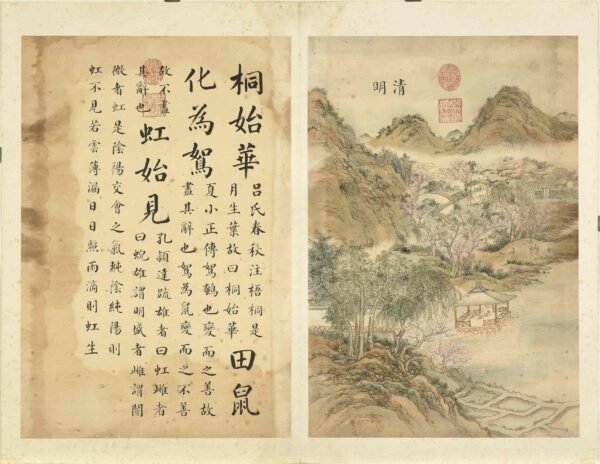 清明
桐始華
吕氏春秋注梧桐是
月生葉故曰桐始華
田鼠
化為鴽
夏小正傳鴽鵪也變而之善故
盡其辭也鴽為鼠變而之不善
故不盡
其辭也
虹始見
孔穎達疏雄者曰虹雌者
曰蜺雄謂明盛者雌謂闇
微者虹是陰陽交會之氣純陰純陽則
虹不見若雲薄漏日日照雨滴則虹生